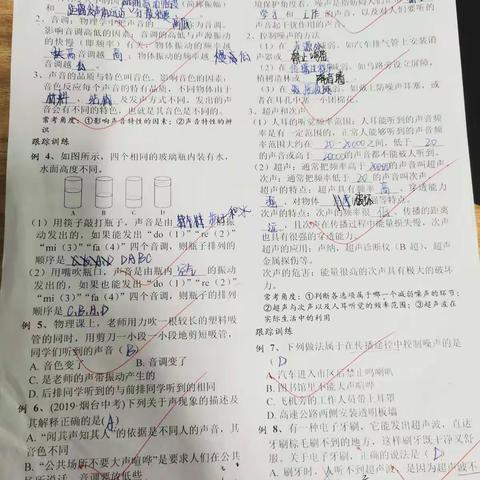 2. 音调:物理学中把声音的
影响音调高低的因素:
的快慢(即频率)有关。物体振动的频率越
高,音调越高;物体振动的频率越
3. 声音的品质与特色叫音色。影响音色的因素:
音色反应每个声音的特有品质,不同物体由于
材料、结构及发声方式不同,发出的声
音会有不同的特色,也就是其声音音色是不同的。
常考角度:①影响声音特性的因素;②声音特性的辨
识
跟踪训练
例 4、如图所示,四个相同的玻璃瓶内装有水,
水面高度不同。
A B C D
(1)用筷子敲打瓶子,声音是由 和水 的振
动发出的,如果能发出“do(1)”“re(2)”
“mi(3)”“fa(4)”四个音调,则瓶子排列的
顺序是 DABC
(2)用嘴吹瓶口,声音是由瓶内空气的振动
发出的,如果也能发出“do(1)”“re(2)”
“mi(3)”“fa(4)”四个音调,则瓶子的排列
顺序是C.B.A.D
例 5、物理课上,老师用力吹一根较长的塑料吸
管的同时,用剪刀一小段一小段地剪短吸管,
同学们听到的声音(B)
A. 音色变了 B. 音调变了
C. 是老师的声带振动产生的
D. 后排同学听到的与前排同学听到的相同
例 6、(2019·烟台中考)下列关于声现象的描述及
其解释正确的是(A)
A. “闻其声知其人”的依据是不同人的声音,其
音色不同
B. “公共场所不要大声喧哗”是要求人们在公共
场所说话,音调要放低些
学习和工作的声音,以及对人们要听的
2. 控制噪声的方法
(1)在声源处,如汽车排气管上安装消
声器或禁止鸣笛
(2)在传播过程中,如马路旁设立屏障,
植树造林或隔音墙
(3)在,如戴上防噪声耳塞,或
者在耳孔中塞一小团棉花。
3. 超声和次声
(1)可听声:人耳能听到的声音频
率是有一定范围的,正常人能够听到的声音频
率范围大约在20-20000之间,低于20
的声音或高于20000的声音都不能被人听到。
(2)超声:通常把频率高于20000的声音叫超
声;次声:通常把频率低于20的声音叫次声。
超声的特点:超声具有频率高、穿透能力
强、对物体
次声的特点:次声的频率很低、传播的距离
远,且次声在传播过程中能量损失慢,次声
也具有很强的穿透能力。
超声的应用:声纳、超声诊断仪(B 超)、超声
金属探伤等。
次声的危害:能量很高的次声具有极大的破坏
力。
常考角度:①判断各选项属于哪一个减弱噪声的环节;
②超声与次声以及人耳听觉的频率范围;③超声波在
实际生活中的利用
跟踪训练
例 7、下列做法属于在传播途径中控制噪声的是
(D)
A. 汽车进入市区后禁止鸣喇叭
B. 图书馆里不能大声喧哗
C. 飞机旁的工作人员带上耳罩
D. 高速公路两侧安装透明板墙
例 8、有一种电子牙刷,它能发出超声波,直达
牙刷棕毛刷不到的地方,这样刷牙既干净又舒
服。关于电子牙刷,正确的说法是(D)
A. 刷牙时,人听不到超声波,是因为超声波不